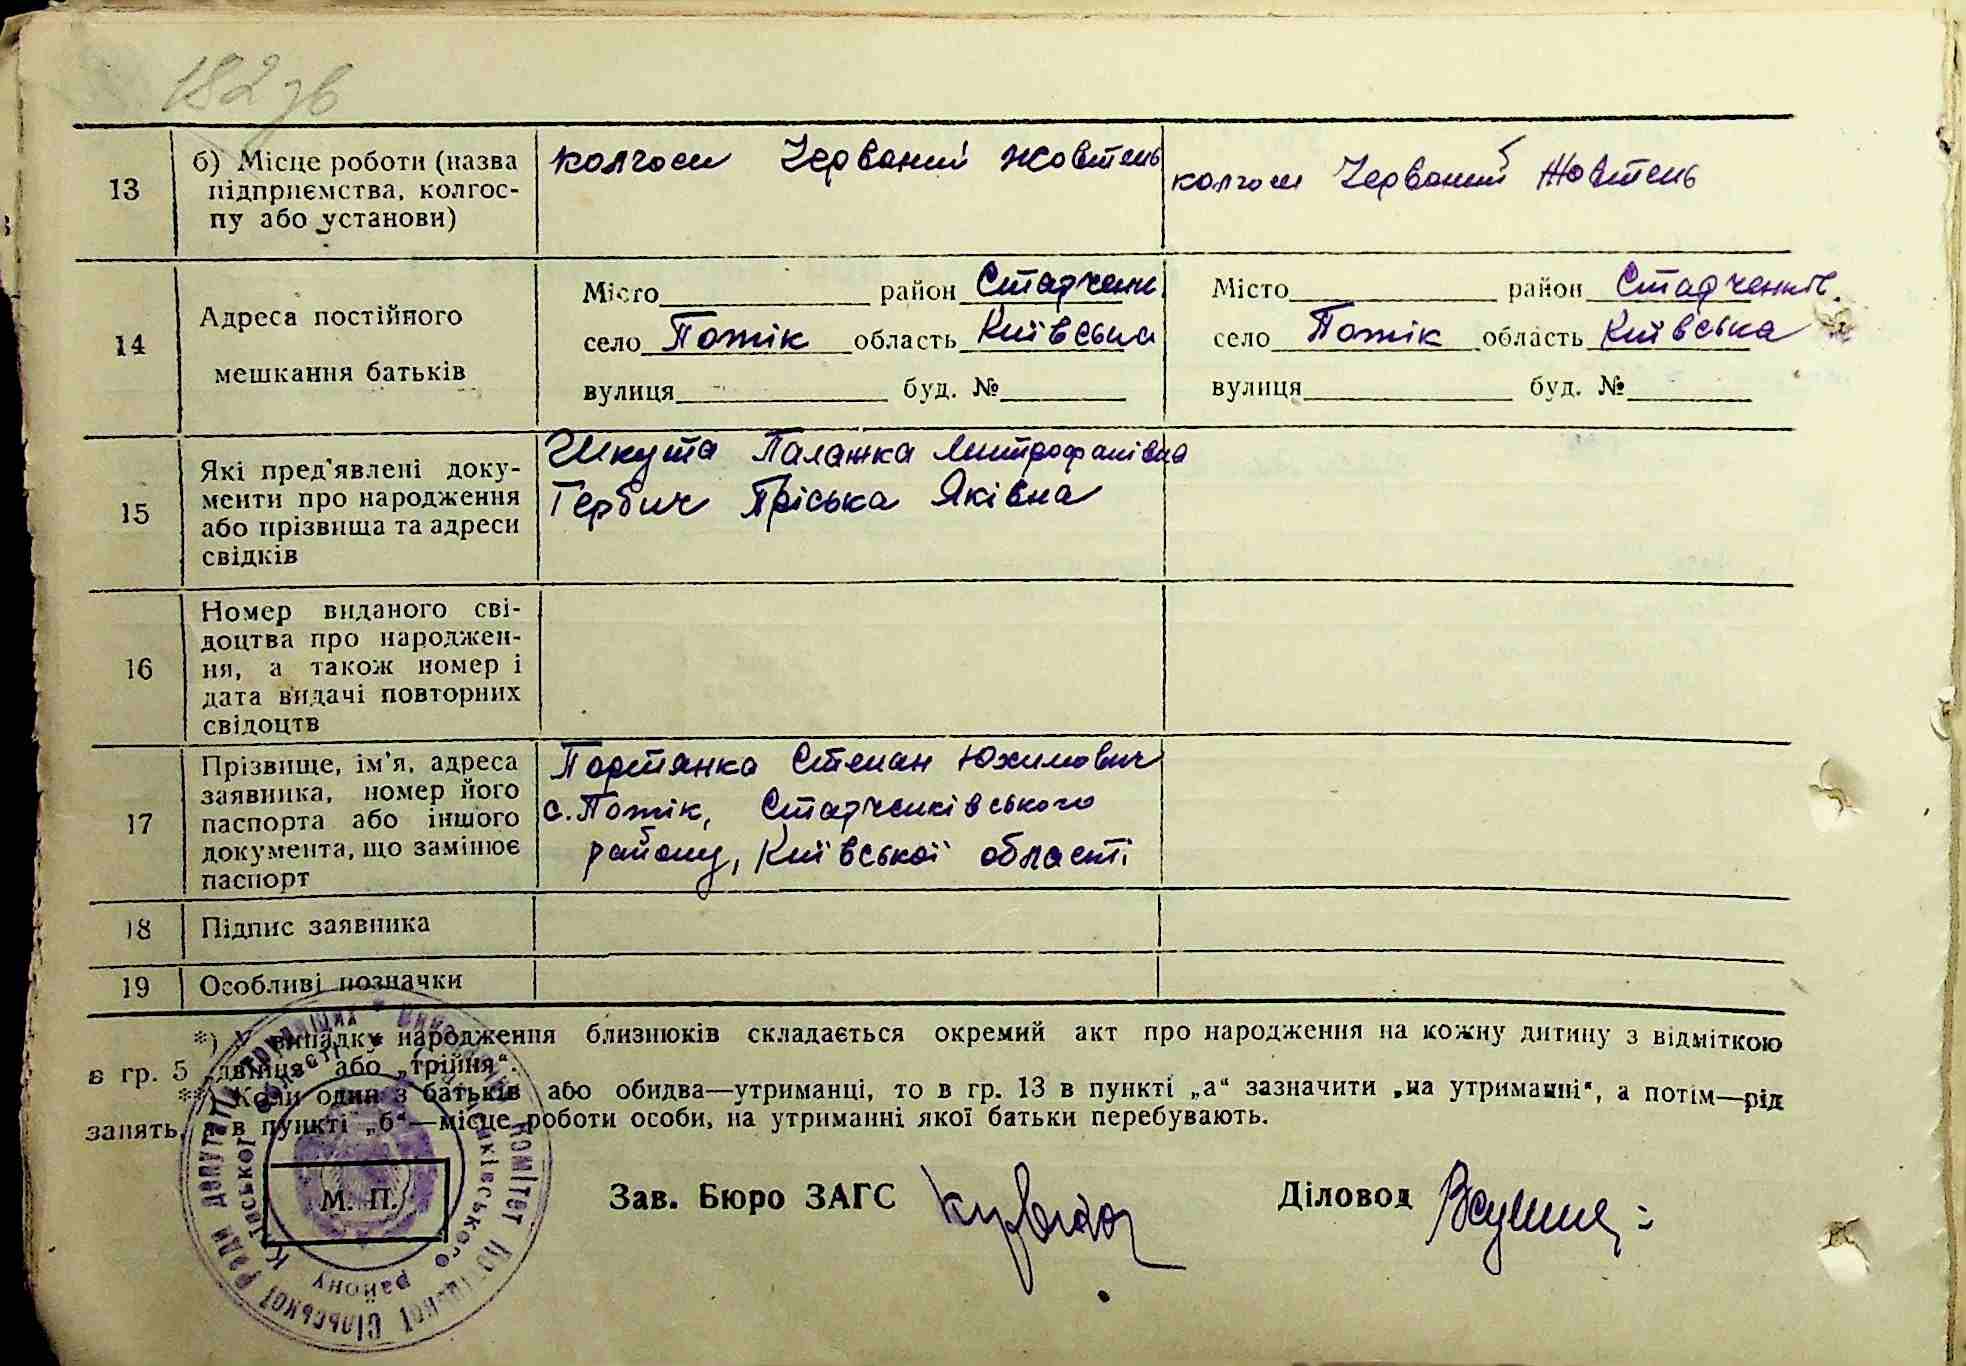 182 зв
13
б) Місце роботи (назва
підприємства, колгос-
пу або установи)
колгосп Червоний Жовтень
колгосп Червоний Жовтень
14
Адреса постійного
мешкання батьків
Місто район Старченк.
село Потік область Київська
вулиця буд. №
Місто район Старченків.
село Потік область Київська
вулиця буд. №
15
Які пред'явлені доку-
менти про народження
або прізвища та адреси
свідків
Шкута Палажка Митрофанівна
Гербич Пріська Яківна
16
Номер виданого сві-
доцтва про народжен-
ня, а також номер і
дата видачі повторних
свідоцтв
17
Прізвище, ім'я, адреса
заявника, номер його
паспорта або іншого
документа, що замінює
паспорт
Партянка Степан Юхимович
с. Потік, Старченківського
району, Київської області
18
Підпис заявника
19
Особливі позначки
*) У випадку народження близнюків складається окремий акт про народження на кожну дитину з відміткою
в гр. 5 „двійня“ або „трійня“.
**) Коли один з батьків або обидва—утриманці, то в гр. 13 в пункті „а“ зазначити „на утриманні“, а потім—рід
занять, а в пункті „б“—місце роботи особи, на утриманні якої батьки перебувають.
М. П.
Зав. Бюро ЗАГС
Діловод